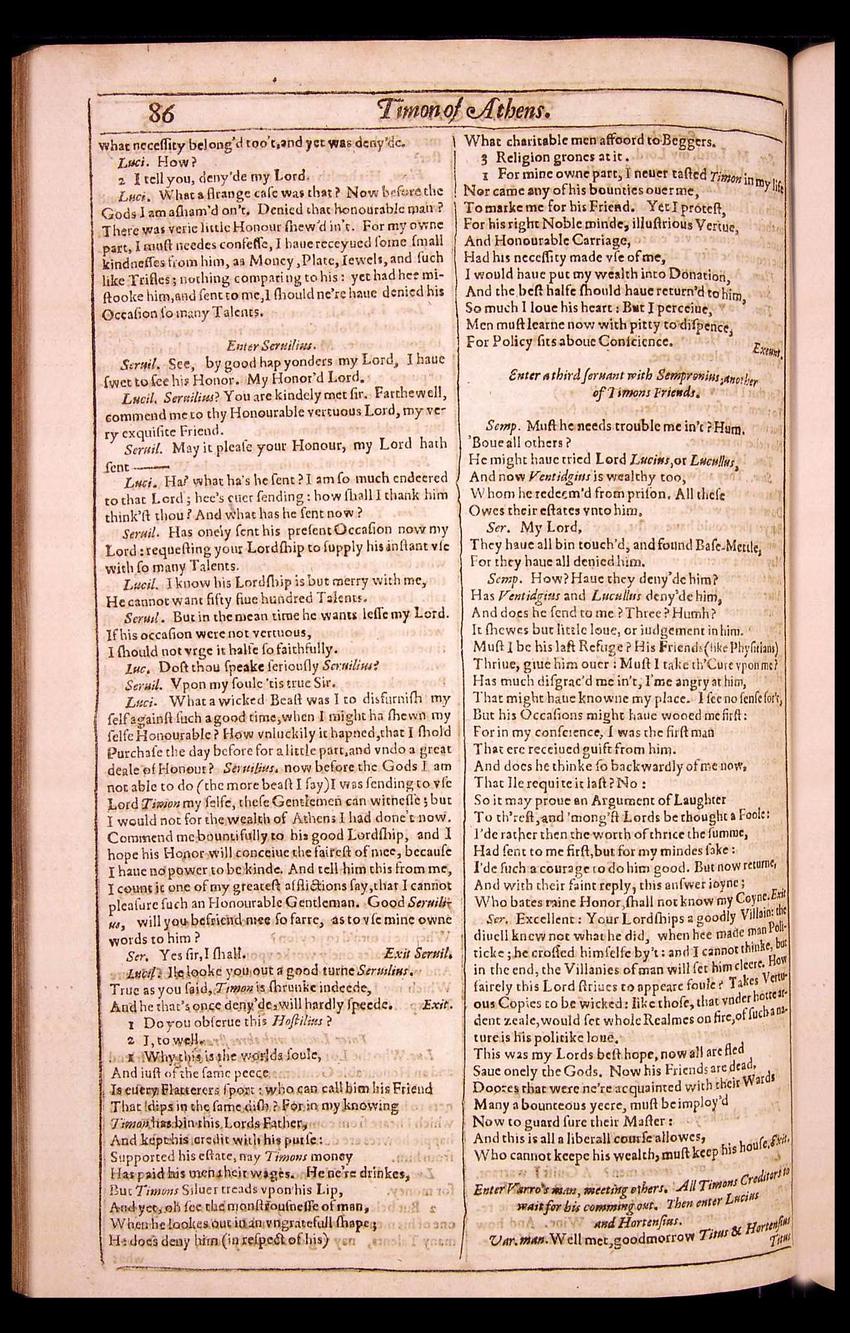 86
Timon of Athens.
what necessity belong'd too't,and yet was deny'de.
Luci. How?
2 I tell you, deny'de my Lord.
Luci. What a strange case was that? Now before the
Gods I am asham'd on't. Denied that honourable man?
There was verie little Honour shew'd in't. For my owne
part, I must needes confesse, I haue receyued some small
kindnesses from him, as Money, Plate, Iewels, and such
like Trifles; nothing comparing to his: yet had hee mi-
stooke him,and sent to me,I should ne're haue denied his
Occasion so many Talents.
Enter Seruilius.
Seruil. See, by good hap yonders my Lord, I haue
swet to see his Honor. My Honor'd Lord.
Lucil. Seruilius? You are kindely met sir. Farthewell,
commend me to thy Honourable vertuous Lord, my ve-
ry exquisite Friend.
Seruil. May it please your Honour, my Lord hath
sent ——
Luci. Ha? what ha's he sent? I am so much endeered
to that Lord; hee's euer sending: how shall I thank him
think'st thou? And what has he sent now?
Seruil. Has onely sent his present Occasion now my
Lord: requesting your Lordship to supply his instant vse
with so many Talents.
Lucil. I know his Lordship is but merry with me,
He cannot want fifty fiue hundred Talents.
Seruil. But in the mean time he wants lesse my Lord.
If his occasion were not vertuous,
I should not vrge it halfe so faithfully.
Luc. Dost thou speake seriously Seruilius?
Seruil. Vpon my soule 'tis true Sir.
Luci. What a wicked Beast was I to disfurnish my
self against such a good time,when I might ha shewn my
selfe Honourable? How vnluckily it hapned,that I shold
Purchase the day before for a little part,and vndo a great
deale of Honour? Seruilius, now before the Gods I am
not able to do (the more beast I say) I was sending to vse
Lord Timon my selfe, these Gentlemen can witnesse; but
I would not for the wealth of Athens I had done't now.
Commend me bountifully to his good Lordship, and I
hope his Honor will conceiue the fairest of mee, because
I haue no power to be kinde. And tell him this from me,
I count it one of my greatest afflictions say,that I cannot
pleasure such an Honourable Gentleman. Good Seruili-
us, will you befriend mee so farre, as to vse mine owne
words to him?
Ser. Yes sir, I shall. Exit Seruil.
Lucil. Ile looke you out a good turne Seruilius.
True as you said, Timon is shrunke indeede,
And he that's once deny'de, will hardly speede. Exit.
1 Do you obserue this Hostilius?
2 I, to well.
1 Why this is the worlds soule,
And iust of the same peece
Is euery Flatterers sport: who can call him his Friend
That dips in the same dish? For in my knowing
Timon has bin this Lords Father,
And kept his credit with his purse:
Supported his estate, nay Timons money
Has paid his men their wages. He ne're drinkes,
But Timons Siluer treads vpon his Lip,
And yet, oh see the monstrousnesse of man,
When he lookes out in an vngratefull shape;
He does deny him (in respect of his)
What charitable men affoord to Beggers.
3 Religion grones at it.
1 For mine owne part, I neuer tasted Timon in my life
Nor came any of his bounties ouer me,
To marke me for his Friend. Yet I protest,
For his right Noble minde, illustrious Vertue,
And Honourable Carriage,
Had his necessity made vse of me,
I would haue put my wealth into Donation,
And the best halfe should haue return'd to him,
So much I loue his heart: But I perceiue,
Men must learne now with pitty to dispence,
For Policy sits aboue Conscience. Exeunt.
Enter a third seruant with Sempronius, another
of Timons Friends.
Semp. Must he needs trouble me in't? Hum.
'Boue all others?
He might haue tried Lord Lucius, or Lucullus,
And now Ventidgius is wealthy too,
Whom he redeem'd from prison. All these
Owes their estates vnto him.
Ser. My Lord,
They haue all bin touch'd, and found Base-Mettle,
For they haue all denied him.
Semp. How? Haue they deny'de him?
Has Ventidgius and Lucullus deny'de him,
And does he send to me? Three? Humh?
It shewes but little loue, or iudgement in him.
Must I be his last Refuge? His Friends (like Physitians)
Thriue, giue him ouer: Must I take th'Cure vpon me?
Has much disgrac'd me in't, I'me angry at him,
That might haue knowne my place. I see no sense for't,
But his Occasions might haue wooed me first:
For in my conscience, I was the first man
That ere receiued guift from him.
And does he thinke so backwardly of me now,
That Ile requite it last? No:
So it may proue an Argument of Laughter
To th'rest, and 'mong'st Lords be thought a Foole:
I'de rather then the worth of thrice the summe,
Had sent to me first, but for my mindes sake:
I'de such a courage to do him good. But now returne,
And with their faint reply, this answer ioyne;
Who bates mine Honor, shall not know my Coyne. Exit
Ser. Excellent: Your Lordships a goodly Villain: the
diuell knew not what he did, when hee made man Poli-
ticke; he crossed himselfe by't: and I cannot thinke, but
in the end, the Villanies of man will set him cleere. How
fairely this Lord striues to appeare foule? Takes Vertu-
ous Copies to be wicked: like those, that vnder hotte ar-
dent zeale, would set whole Realmes on fire, of such a na-
ture is his politike loue.
This was my Lords best hope, now all are fled
Saue onely the Gods. Now his Friends are dead,
Doores that were ne're acquainted with their Wards
Many a bounteous yeere, must be imploy'd
Now to guard sure their Master:
And this is all a liberall course allowes,
Who cannot keepe his wealth, must keep his house. Exit.
Enter Varro's man, meeting others. All Timons Creditors to
wait for his comming out. Then enter Lucius
and Hortensius.
Var. man. Well met, goodmorrow Titus & Hortensius
Titus